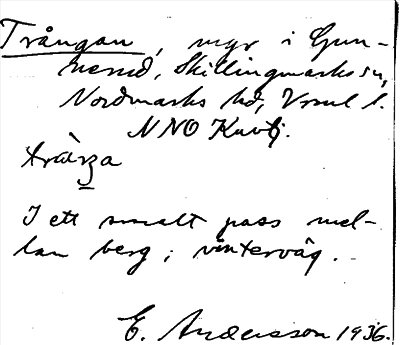 Trångan, myr i Gun-
nerud, Skillingmarks sn,
Nordmarks hd, Vrml l.
NNO Kavtj.
tràŋa
I ett smalt pass mel-
lan berg; vinterväg.
E. Andersson 1936.